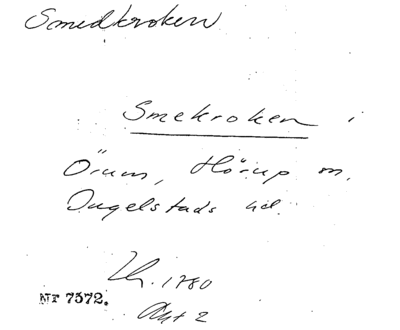 Smedkroken
Smekroken i
Örum, Hörup sn.
Ingelstads hd.
1780
Akt 2
NT 7572.